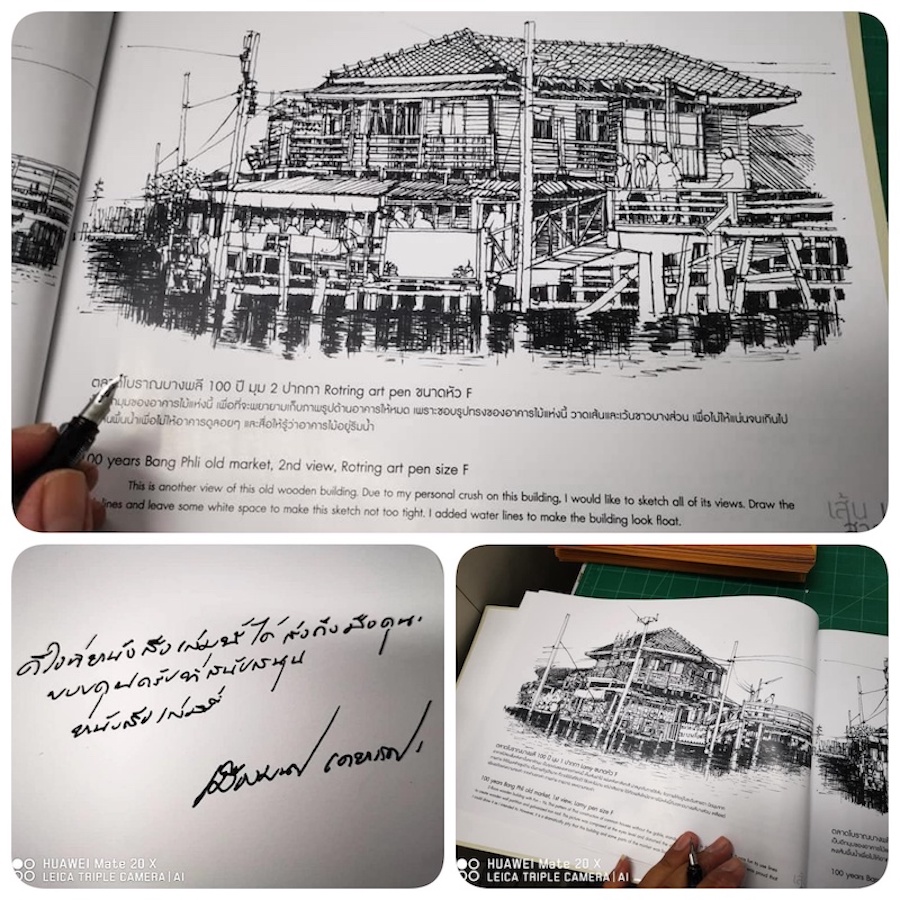 ตลาดโบราณบางพลี 100 ปี มุม 2 ปากกา Rotring art pen ขนาดหัว F
มุมของอาคารไม้แห่งนี้ เพื่อที่จะพยายามเก็บภาพรูปด้านอาคารให้หมด เพราะชอบรูปทรงของอาคารไม้แห่งนี้ วาดเส้นและเว้นขาวบางส่วน เพื่อไม่ให้แน่นจนเกินไป
พื้นน้ำเพื่อไม่ให้อาคารดูลอยๆ และสื่อให้รู้ว่าอาคารไม้อยู่ริมน้ำ
00 years Bang Phli old market, 2nd view, Rotring art pen size F
This is another view of this old wooden building. Due to my personal crush on this building, I would like to sketch all of its views. Draw the
lines and leave some white space to make this sketch not too tight. I added water lines to make the building look float.
เส้น
ดีใจที่หนังสือเล่มนี้ ได้ส่งถึงมือคุณ.
ขอบคุณครับที่สนับสนุน
หนังสือเล่มนี้
HUAWEI Mate 20 X
LEICA TRIPLE CAMERA | AI
ตลาดโบราณบางพลี 100 ปี มุม 1 ปากกา Lamy ขนาดหัว F
100 years Bang Phli old market, 1st view, Lamy pen size F
ตลาดโบราณบางพลี
100 years
HUAWEI Mate 20 X
LEICA TRIPLE CAMERA | AI